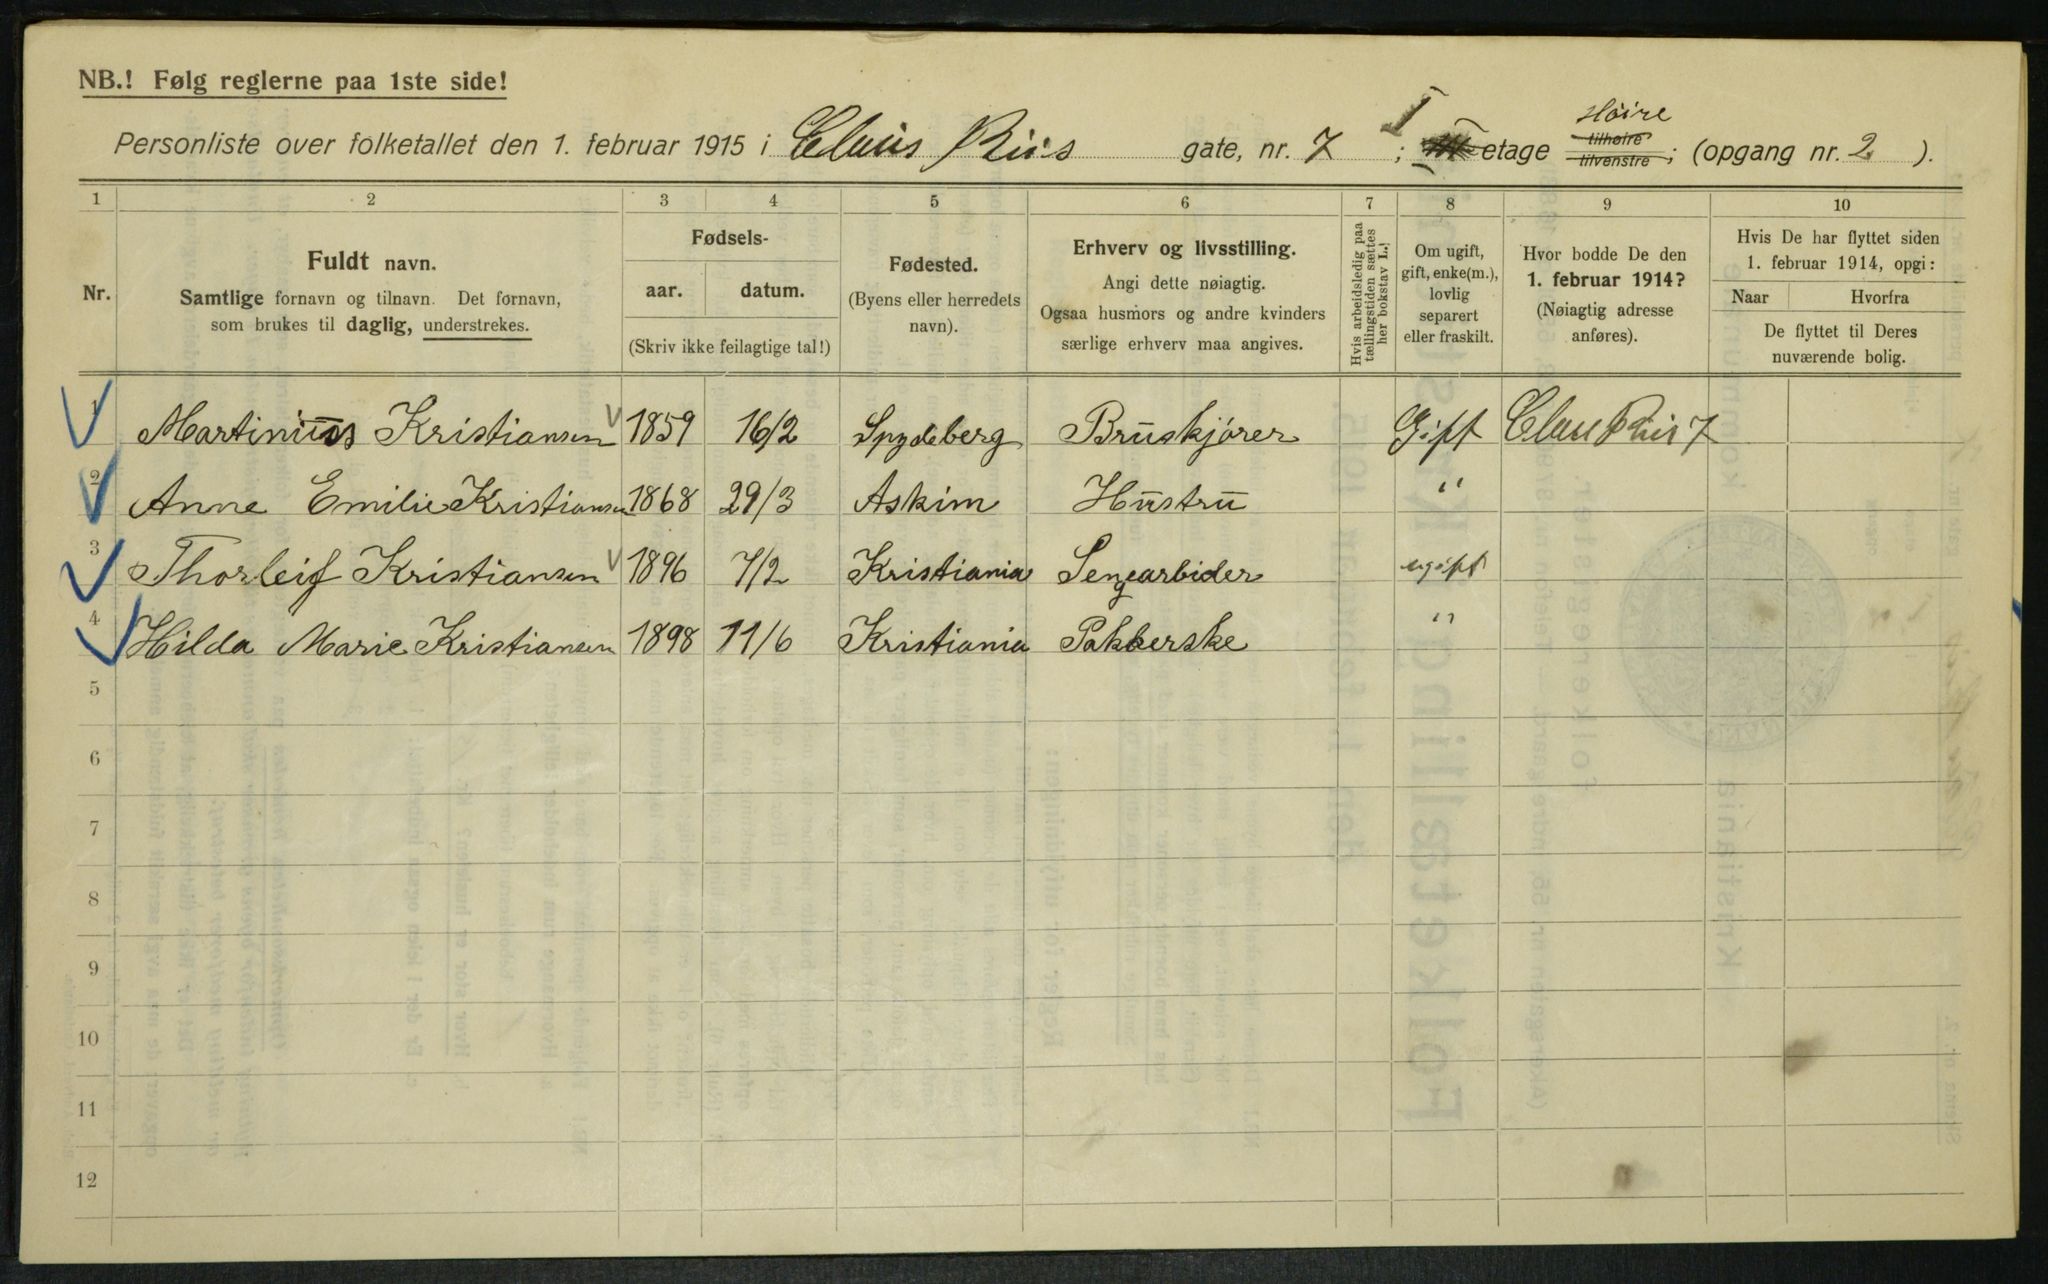 NB.! Følg reglerne paa 1ste side!
Høire
Personliste over folketallet den 1. februar 1915 i Claus Riis gate, nr. 7 ; I etage tilhøire tilvenstre ; (opgang nr. 2 ).
1 2 3 4 5 6 7 8 9 10
Nr.
Fuldt navn.
Samtlige fornavn og tilnavn. Det fornavn,
som brukes til daglig, understrekes.
Fødsels-
aar. datum.
(Skriv ikke feilagtige tal!)
Fødested.
(Byens eller herredets
navn).
Erhverv og livsstilling.
Angi dette nøiagtig.
Ogsaa husmors og andre kvinders
særlige erhverv maa angives.
Hvis arbeidsledig paa
tællingstiden sættes
her bokstav L.!
Om ugift,
gift, enke(m.),
lovlig
separert
eller fraskilt.
Hvor bodde De den
1. februar 1914?
(Nøiagtig adresse
anføres).
Hvis De har flyttet siden
1. februar 1914, opgi:
Naar Hvorfra
De flyttet til Deres
nuværende bolig.
1 Martinius Kristiansen 1859 16/2 Spydeberg Bruskjører Gift Claus Riis 7
2 Anne Emilie Kristiansen 1868 29/3 Askim Hustru "
3 Thorleif Kristiansen 1896 7/2 Kristiania Sengearbider ugift
4 Hilda Marie Kristiansen 1898 11/6 Kristiania Pakkerske "
5
6
7
8
9
10
11
12